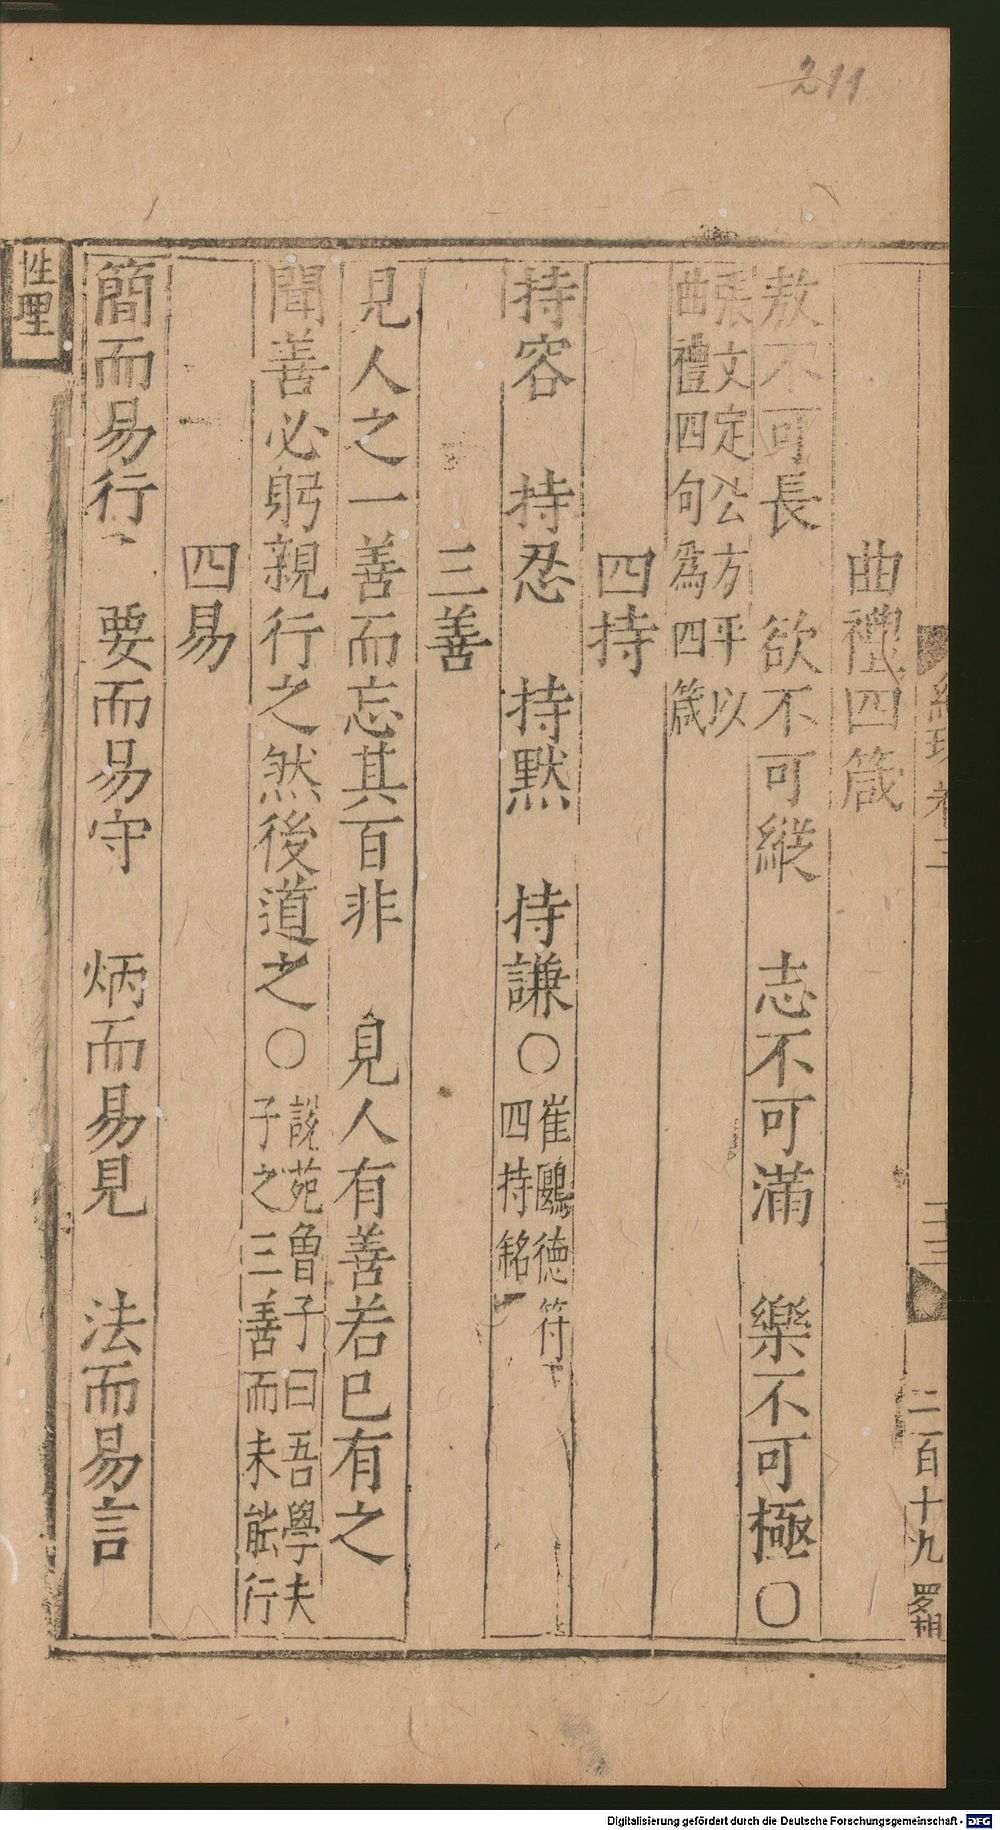 211
二百十九
曲禮四箴
敖不可長　欲不可縱　志不可滿　樂不可極○
張文定公方平以
曲禮四句爲四箴
四持
持容　持忍　持默　持謙○崔鷗德符
四持銘
三善
見人之一善而忘其百非　見人有善若已有之
聞善必躬親行之然後道之○說苑魯子曰吾學夫
子之三善而未能行
四易
簡而易行　要而易守　炳而易見　法而易言
性理
Digitalisierung gefördert durch die Deutsche Forschungsgemeinschaft - DFG